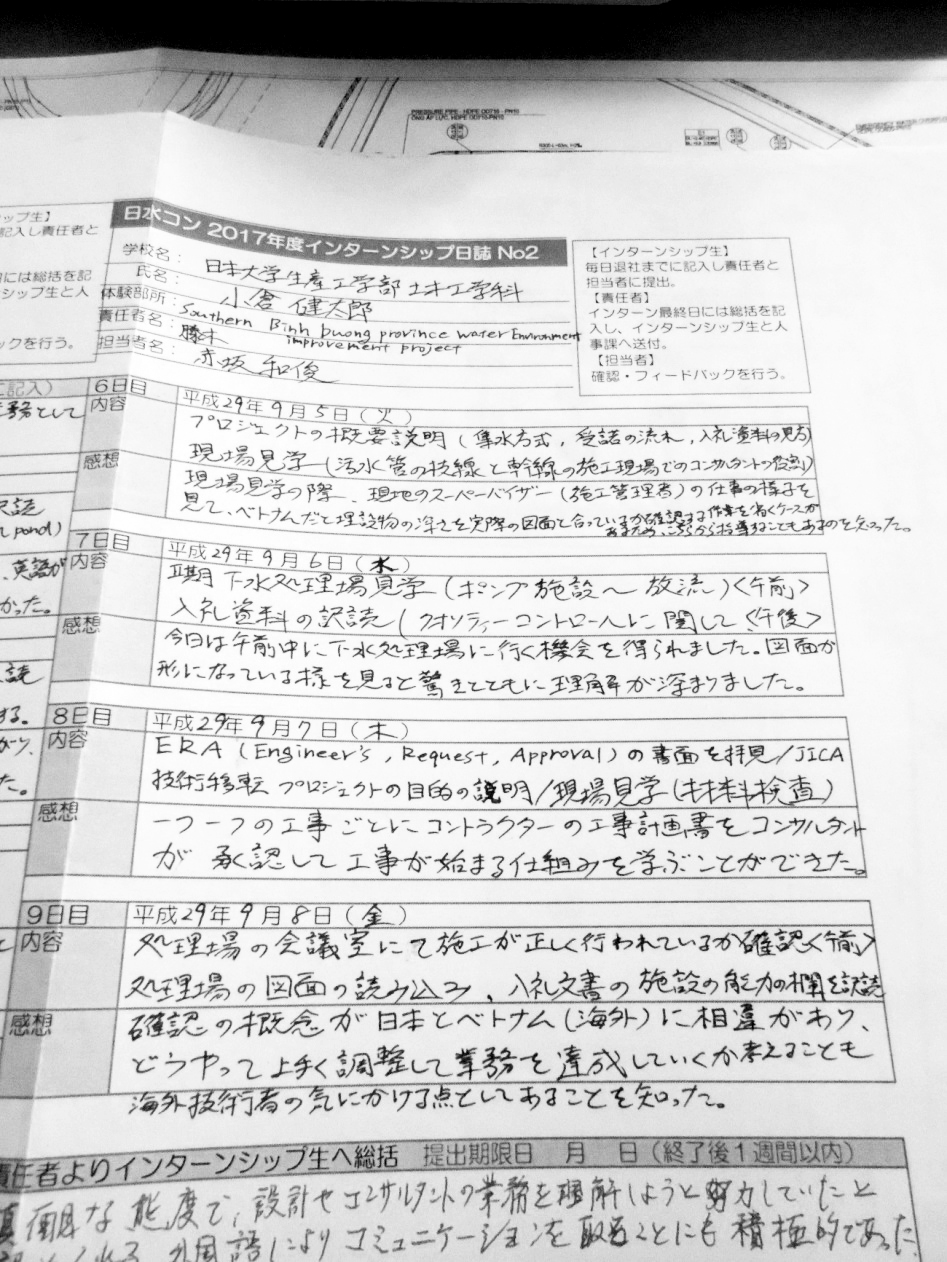 PRESSURE PIPE, HDPE OD710 - PN10
ONG AP LUC, HDPE OD710-PN10
日水コン 2017年度インターンシップ日誌 No2
学校名： 日本大学生産工学部土木工学科
氏名： 小倉 健太郎
体験部所： Southern Binh Duong province water Environment
improvement project
責任者名： 勝木
担当者名： 赤坂 和俊
【インターンシップ生】
毎日退社までに記入し責任者と
担当者に提出。
【責任者】
インターン最終日には総括を記
入し、インターンシップ生と人
事課へ送付。
【担当者】
確認・フィードバックを行う。
ップ生】
記入し責任者と
には総括を記
シップ生と人
ックを行う。
記入）
務として
訳読
pond)
、英語が
かった。
読
する。
がり、
た。
と
6日目 平成29年9月5日（火）
内容 プロジェクトの概要説明（集水方式，受諾の流れ，入札資料の見方）
現場見学（汚水管の枝線と幹線の施工現場でのコンサルタントの役割）
感想 現場見学の際、現地のスーパーバイザー（施工管理者）の仕事の様子を
見て、ベトナムだと埋設物の深さを実際の図面と合っているか確認する作業を省くケースが
あるため、こちらから指導することもあるのを知った。
7日目 平成29年9月6日（水）
内容 Ⅱ期下水処理場見学（ポンプ施設〜放流）〈午前〉
入札資料の訳読（クオリティーコントロールに関して〈午後〉
感想 今日は午前中に下水処理場に行く機会を得られました。図面が
形になっている様を見ると驚きとともに理解が深まりました。
8日目 平成29年9月7日（木）
内容 ERA（Engineer's , Request , Approval）の書面を拝見/JICA
技術移転プロジェクトの目的の説明/現場見学（材料検査）
感想 一つ一つの工事ごとにコントラクターの工事計画書をコンサルタント
が承認して工事が始まる仕組みを学ぶことができた。
9日目 平成29年9月8日（金）
内容 処理場の会議室にて施工が正しく行われているか確認〈午前〉
処理場の図面の読み込み、入札文書の施設の能力の欄を訳読
感想 確認の概念が日本とベトナム（海外）に相違があり、
どうやって上手く調整して業務を達成していくか考えることも
海外技術者の気にかける点としてあることを知った。
責任者よりインターンシップ生へ総括 提出期限日 月 日（終了後1週間以内）
真面目な態度で、設計やコンサルタントの業務を理解しようと努力していたと
外国語によりコミュニケーションを取ることにも積極的であった